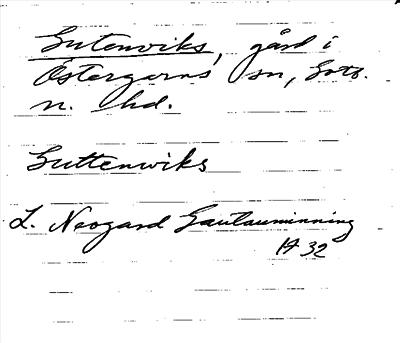 Gutenviks, gård i
Östergarns sn, Gotl.
n. hd.
Guttenwiks
L. Neogard Gautauminning
1732